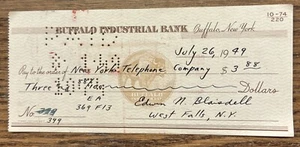 BUFFALO INDUSTRIAL BANK Buffalo, New York
10-74
220
July 26, 1949
Pay to the order of New York Telephone Company $3 88
Three Dollars
EA
No 399 369 F13 Edwin N. Blaisdell
West Falls, N.Y.
BUFFALO